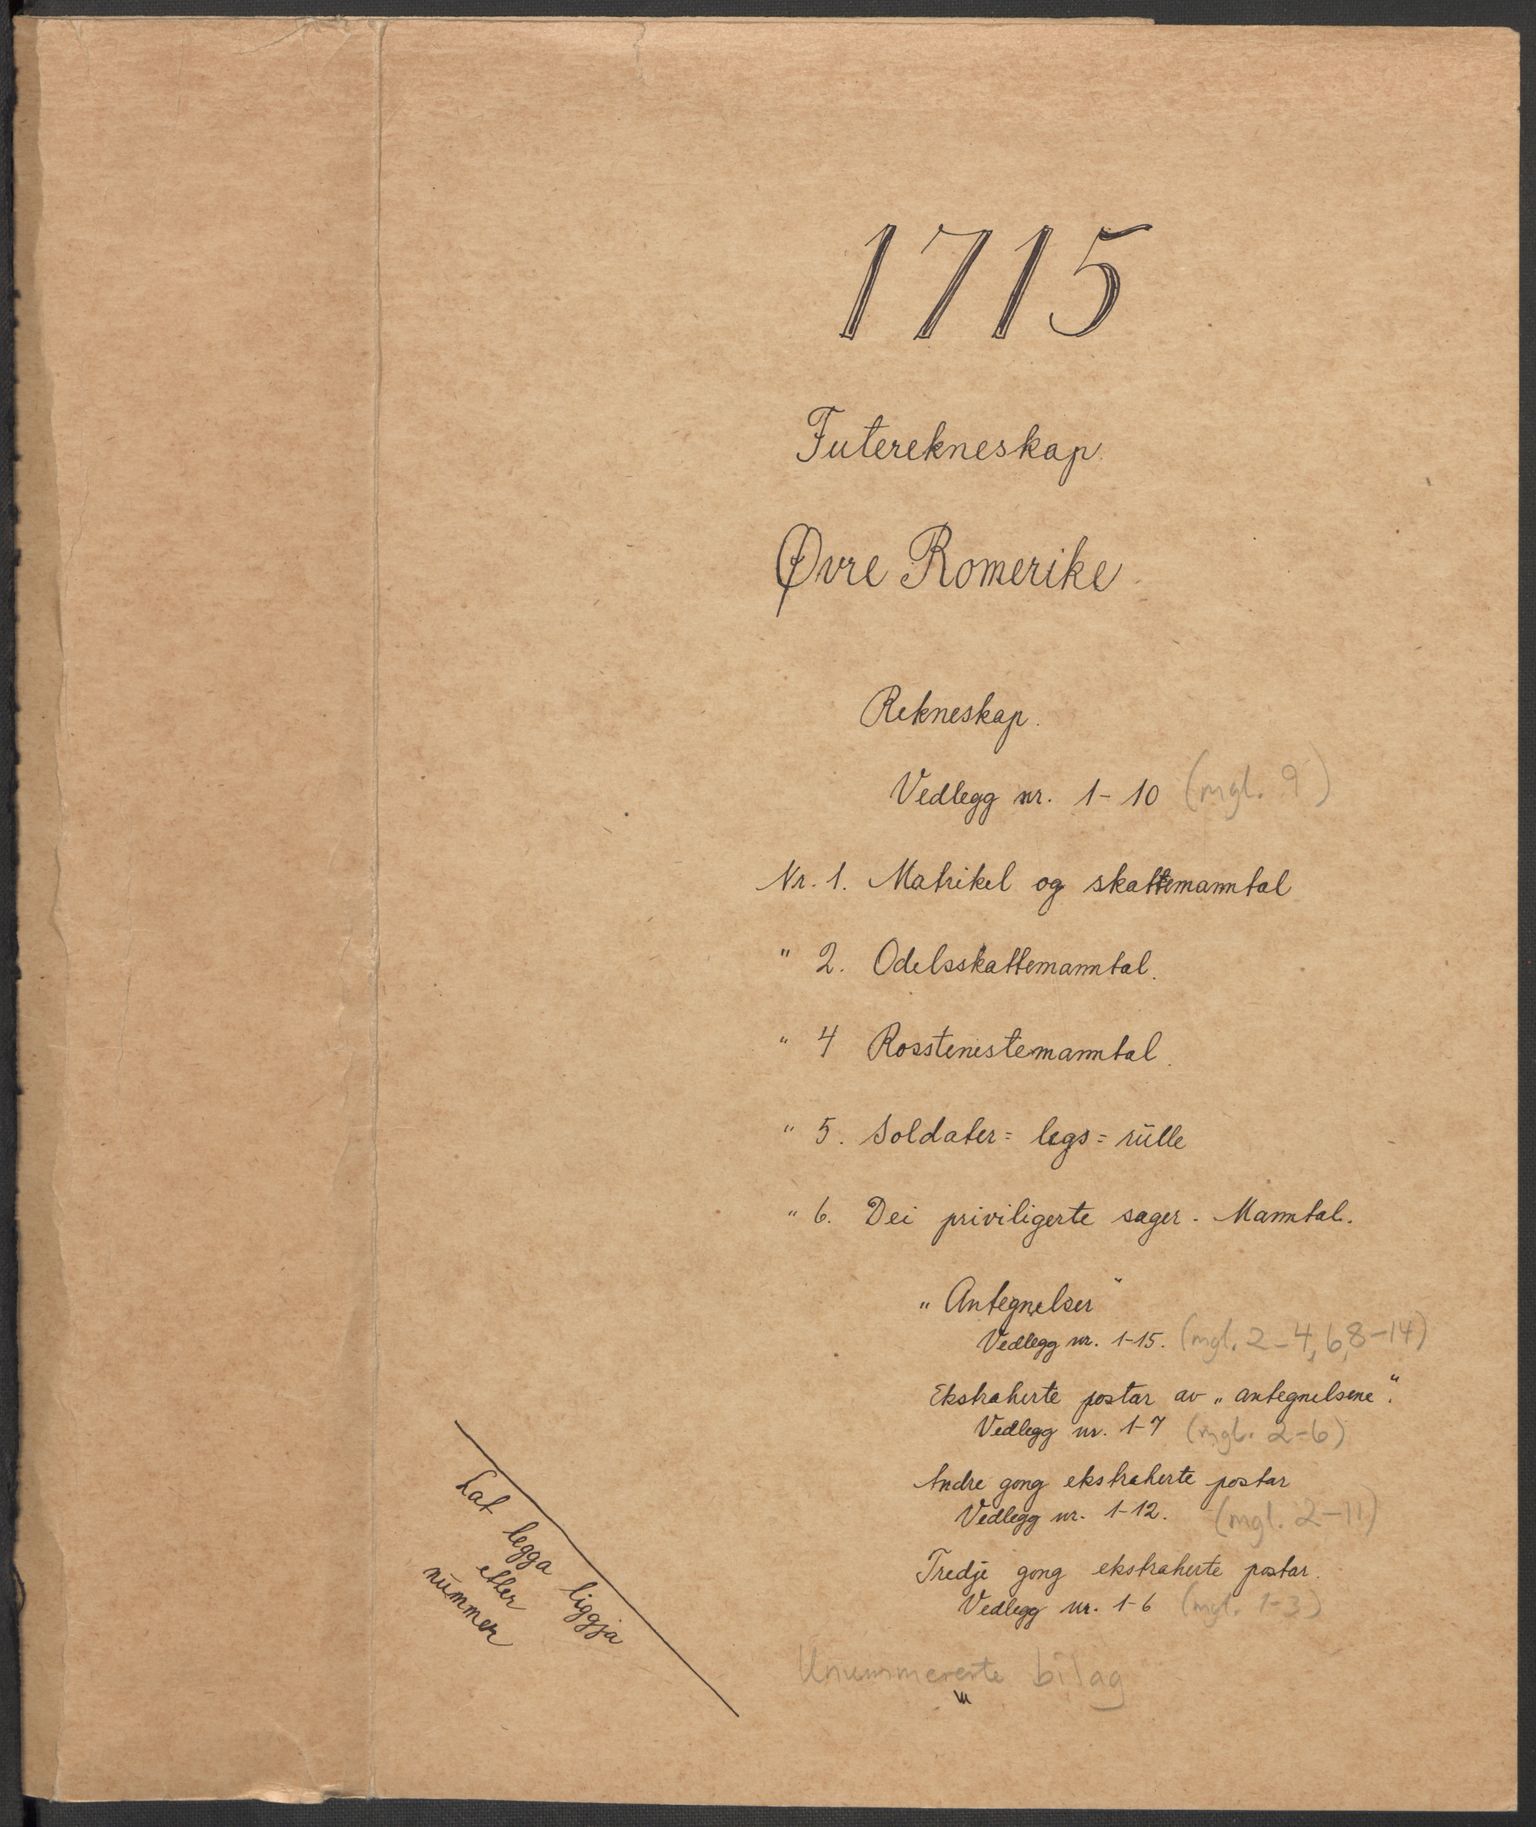 1715
Futerekneskap.
Øvre Romerike.
Rekneskap.
Vedlegg nr. 1-10 (mgl. 9)
Nr. 1. Matrikel og skattemanntal
" 2. Odelsskattemanntal.
" 4 Rosstenestemanntal.
" 5. Soldater= legs= rulle
" 6. Dei priviligerte sager. Manntal.
"Antegnelser"
Vedlegg nr. 1-15. (mgl. 2-4, 6, 8-14)
Ekstraherte postar av „antegnelsene".
Vedlegg nr. 1-7 (mgl. 2-6)
Andre gong ekstraherte postar
Vedlegg nr. 1-12. (mgl. 2-11)
Tredje gong ekstraherte postar.
Vedlegg nr. 1-6 (mgl. 1-3)
Unummererte bilag
Lat legga liggja
etter
nummer